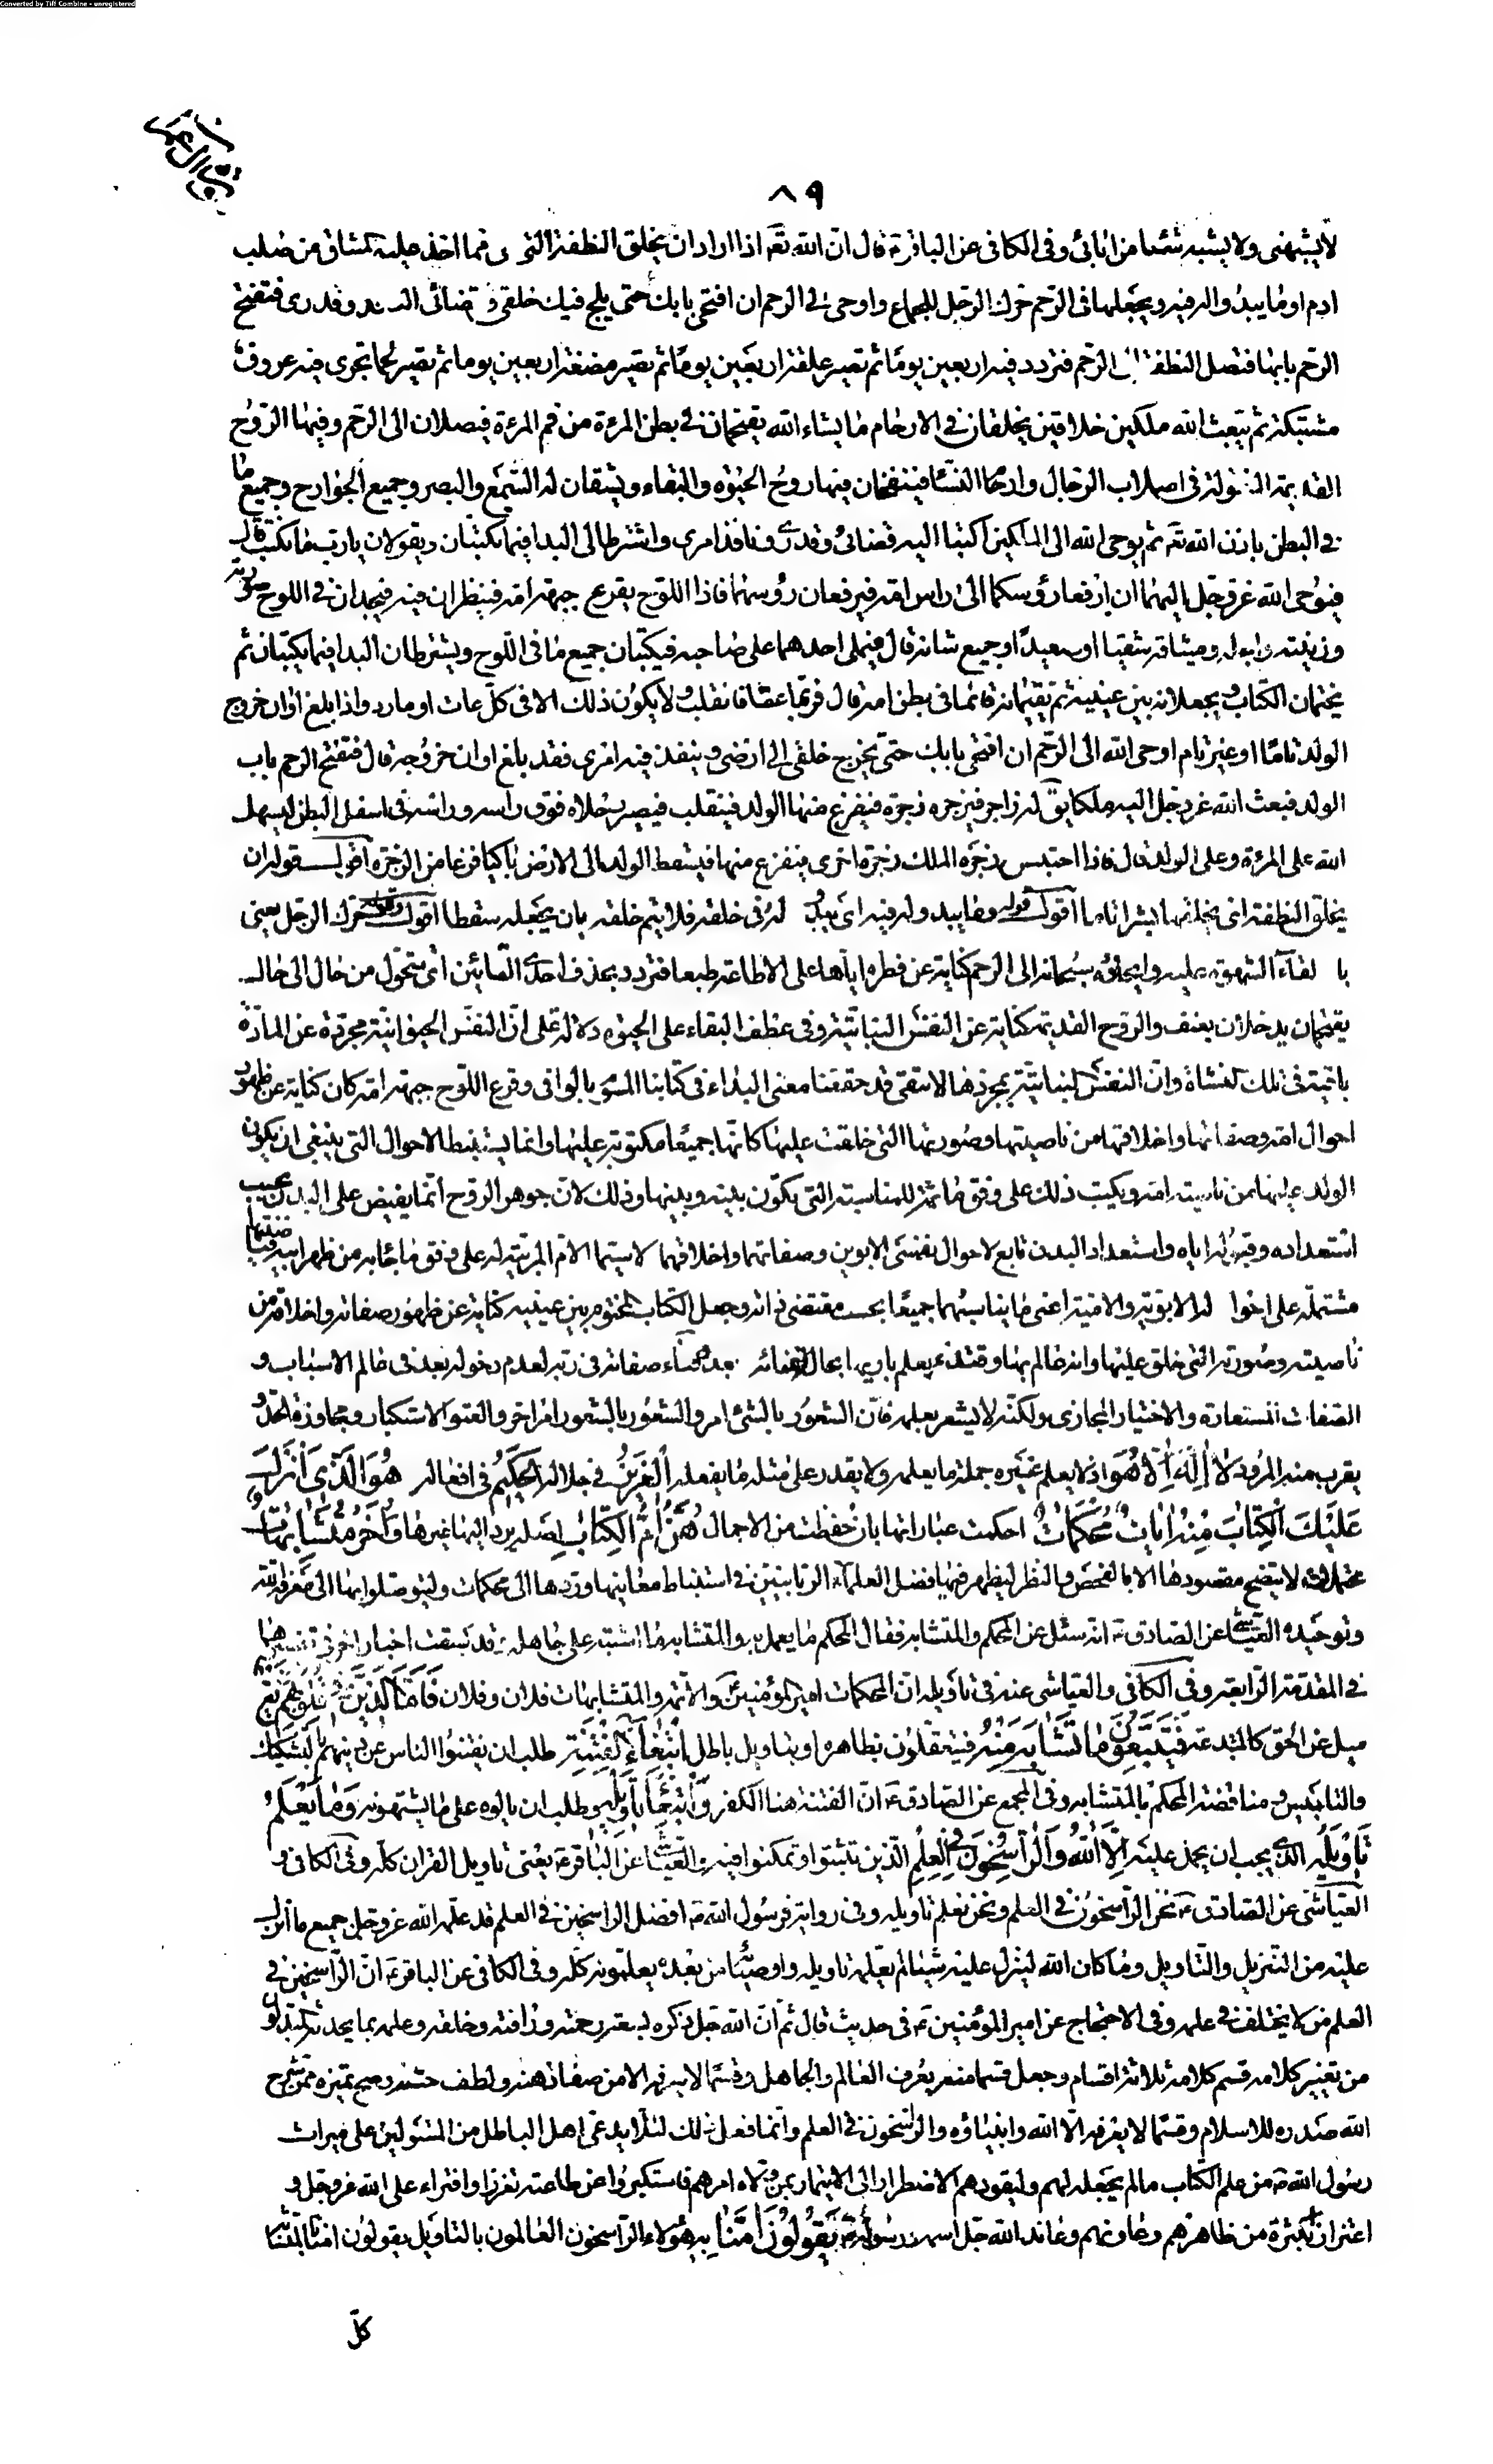 Converted by Tiff Combine - unregistered
آل عمران
٨٩
لا يشبهنى ولا يشبه شيئا من ابائى وفى الكافى عن الباقر ع قال ان الله تعَ اذا اراد ان يخلق النطفة التى هى مما اخذ عليه الميثاق من صلب
ادم او ما يبدو له فيه ويجعلها فى الرّحم حرّك الرّجل للجماع واوحى الى الرحم ان افتحى بابك حتى يلج فيك خلقى وقضائى النافذ وقدرى فتفتح
الرّحم بابها فتصل النطفة الى الرّحم فتردد فيه اربعين يومًا ثم تصير علقة اربعين يومًا ثم تصير مضغة اربعين يوما ثم تصير لحما تجرى فيه عروق
مشتبكة ثم يبعث الله ملكين خلاقين يخلقان فى الارحام ما يشاء الله يقتحمان فى بطن المرءة من فم المرءة فيصلان الى الرّحم وفيها الرّوح
القديمة المنقولة فى اصلاب الرّجال وارحام النّساء فينفخان فيها روح الحيٰوة والبقاء ويشقان له السّمع والبصر وجميع الجوارح وجميع ما
فى البطن باذن الله تعَ ثم يوحى الله الى الملكين اكتبا اليه قضائى وقدرى ونافذ امرى واشترطا لى البدا فيما تكتبان فيقولان يا ربّ ما نكتب قال
فيوحى الله عز وجل اليهما ان ارفعا رؤسكما الى راس امه فيرفعان رؤسهما فاذا اللّوح يقرع جبهة امه فينظران فيه فيجدان فى اللّوح صورته
وزينته واجله وميثاقه شقيا او سعيدًا وجميع شانه قال فيملى احدهما على صاحبه فيكتبان جميع ما فى اللّوح ويشترطان البدا فيما يكتبان ثم
يختمان الكتاب ويجعلانه بين عينيه ثم يقيمانه قائما فى بطن امه قال فربّما عتا فانقلب ولا يكون ذلك الا فى كلّ عات او مارد واذا بلغ اوان خروج
الولد تامًا او غير تام اوحى الله الى الرّحم ان افتحى بابك حتّى يخرج خلقى الى ارضى وينفذ فيه امرى فقد بلغ اوان خروجه قال فتفتح الرحم باب
الولد فبعث الله عز وجل اليه ملكا يقَ له زاجر فيزجره زجرة فيفزع منها الولد فينقلب فيصير رجلاه فوق راسه وراسه فى اسفل البطن ليسهل
الله على المرءة وعلى الولد قال فاذا احتبس زجره الملك زجرة اخرى فيفزع منها فيسقط الولد الى الارض باكيا فزعا من الزجرة اقول قوله ان
يخلق النطفة اى يخلقها بشرا تاما اقول قوله وما يبدو له فيه اى يبدو له فى خلقه فلا يتم خلقه بان يجعله سقطا اقول وقوله حرّك الرجل يعنى
بالقاء الشهوة عليه وايحاؤه سبحانه الى الرحم كناية عن فطره اياها على الاطاعة طبعا فتردد بحذف احدى التائين اى تتحوّل من حال الى حال
يقتحمان يدخلان بعنف والرّوح القديمة كناية عن النفس النباتيّة وفى عطف البقاء على الحيٰوة دلالة على انّ النفس الحيوانيّة مجرّدة عن المادّة
باقية فى تلك النشأة وانّ النفس النباتيّة بمجردها لا تبقى قد حققنا معنى البداء فى كتابنا المسمى بالوافى وقرع اللّوح جبهة امه كانه كناية عن ظهور
احوال امه وصفاتها واخلاقها من ناصيتها وصورتها التى خلقت عليها كانّها جميعًا مكتوبة عليها وانما يستنبط الاحوال التى ينبغى ان يكون
الولد عليها من ناصية امه ويكتب ذلك على وفق ما ثمة للمناسبة التى تكون بينه وبينها وذلك لان جوهر الروح انّما يفيض على البدن بحسب
استعداده وقبوله اياه واستعداد البدن تابع لاحوال نفسى الابوين وصفاتهما واخلاقهما لا سيّما الامّ المربّية له على وفق ما جاء به من ظهر ابيه فناصيتها
مشتملة على احواله الابويّة والاميّة اعنى ما يناسبهما جميعًا بحسب مقتضى ذاته وجعل الكتاب المختوم بين عينيه كناية عن ظهور صفاته واخلاقه من
ناصيته وصورته التى خلق عليها وانه عالم بها وقتئذ بعلم بارئه بها لفنائه بعد وفناء صفاته فى ربّه لعدم دخوله بعد فى عالم الاسباب و
الصّفات المستعارة والاختيار المجازى ولكنّه لا يشعر بعلمه فانّ الشعور بالشئ امر والشّعور بالشعور امر اخر والعتو الاستكبار ومجاوزة الحدّ و
يقرب منه المرود لَا اِلٰهَ اِلَّا هُوَ اذ لا يعلم غيره جملة ما يعلمه ولا يقدر على مثل ما يفعله اَلْعَزِيزُ فى جلاله الْحَكِيمُ فى افعاله هُوَ الَّذِى اَنْزَلَ
عَلَيْكَ الْكِتَابَ مِنْهُ اٰيَاتٌ مُحْكَمَاتٌ احكمت عباراتها بان حفظت من الاجمال هُنَّ اُمُّ الْكِتَابِ اصله يرد اليها غيرها وَاُخَرُ مُتَشَابِهَاتٌ
محتملات لا يتضح مقصودها الا بالفحص والنظر ليظهر فيها فضل العلماء الربّانيّين فى استنباط معانيها وردها الى المحكمات وليتوصلوا بها الى معرفة الله
وتوحيده العيّاشى عن الصّادق ع انه سئل عن المحكم والمتشابه فقال المحكم ما يعمل به والمتشابه ما اشتبه على جاهله قد سبقت اخبار اخر فى تفسيرهما
فى المقدمة الرّابعة وفى الكافى والعيّاشى عنه فى تاويله انّ المحكمات امير المؤمنين ع والائمة ع والمتشابهات فلان وفلان فَاَمَّا الَّذِينَ فِى قُلُوبِهِمْ زَيْغٌ
ميل عن الحق كالمبتدعة فَيَتَّبِعُونَ مَا تَشَابَهَ مِنْهُ فيتعلقون بظاهره او بتاويل باطل ابْتِغَاءَ الْفِتْنَةِ طلب ان يفتنوا الناس عن دينهم بالتشكيك
والتلبيس ومناقضة المحكم بالمتشابه وفى المجمع عن الصّادق ع انّ الفتنة هنا الكفر وَابْتِغَاءَ تَأْوِيلِهِ وطلب ان يأوّلوه على ما يشتهونه وَمَا يَعْلَمُ
تَأْوِيلَهُ الذى يجب ان يحمل عليه اِلَّا اللّٰهُ وَالرَّاسِخُونَ فِى الْعِلْمِ الّذين تثبتوا وتمكنوا فيه العيّاشى عن الباقر ع يعنى تاويل القران كله وفى الكافى و
العيّاشى عن الصّادق ع نحن الرّاسخون فى العلم ونحن نعلم تاويله وفى رواية فرسول الله ص افضل الراسخين فى العلم قد علّمه الله عز وجل جميع ما انزل
عليه من التنزيل والتّاويل وما كان الله لينزل عليه شيئا لم يعلّمه تاويله واوصيائه من بعده يعلمونه كله وفى الكافى عن الباقر ع انّ الرّاسخين فى
العلم من لا يختلف فى علمه وفى الاحتجاج عن امير المؤمنين ع فى حديث قال ثم انّ الله جلّ ذكره لسعة رحمته ورأفته بخلقه وعلمه بما يحدثه المبدّلون
من تغيير كلامه قسم كلامه ثلاثة اقسام فجعل قسما منه يعرفه العالم والجاهل وقسمًا لا يعرفه الا من صفا ذهنه ولطف حسّه وصح تميزه ممّن شرح
الله صدره للاسلام وقسمًا لا يعرفه الّا الله وانبياؤه والرّاسخون فى العلم وانّما فعل ذلك لئلّا يدعى اهل الباطل من المستولين على ميراث
رسول الله ص من علم الكتاب ما لم يجعله لهم وليقودهم الاضطرار الى الايتمار بمن ولّاه امرهم فاستكبروا عن طاعته تعززا وافتراء على الله عز وجل و
اغترارًا بكثرة من ظاهرهم وعاونهم وعاند الله جل اسمه ورسوله ص يَقُولُونَ اٰمَنَّا بِهِ هؤلاء الرّاسخون العالمون بالتاويل يقولون امنا بالمتشابه
كلّ